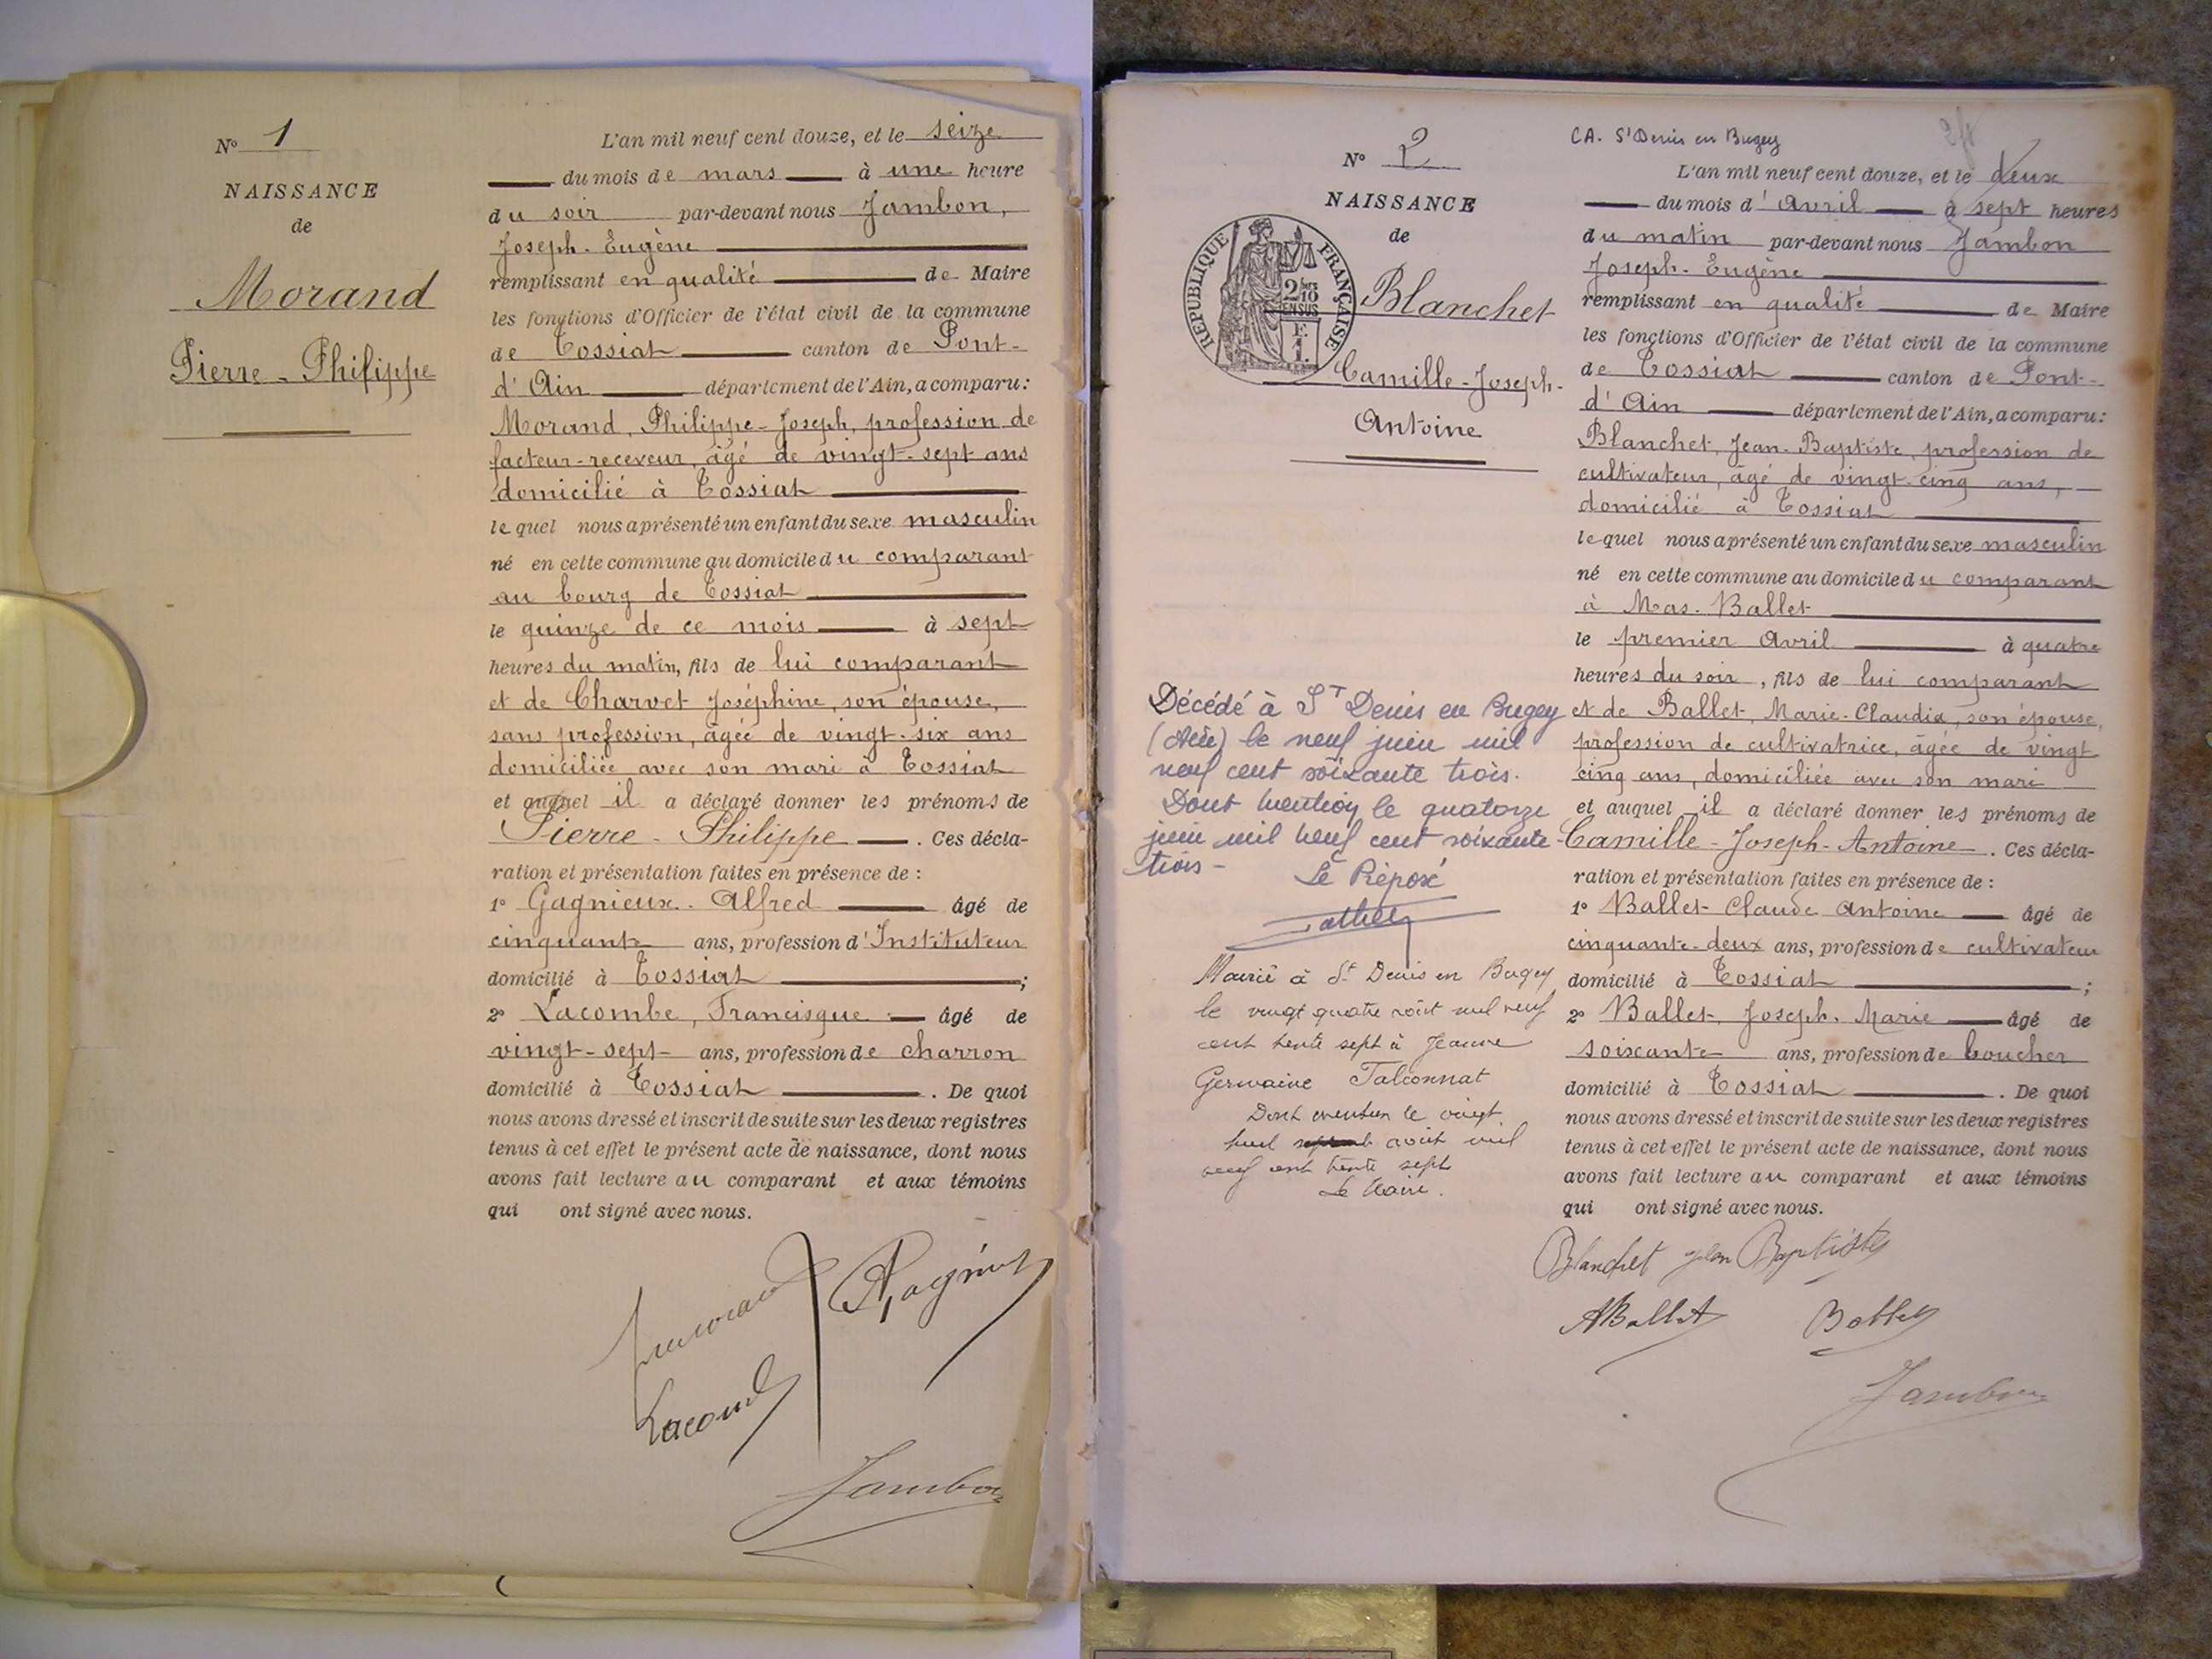 N° 1
NAISSANCE
de
Morand
Pierre - Philippe
L'an mil neuf cent douze, et le seize
du mois de mars à une heure
du soir par-devant nous Jambon,
Joseph-Eugène
remplissant en qualité de Maire
les fonctions d'Officier de l'état civil de la commune
de Tossiat canton de Pont-
d'Ain département de l'Ain, a comparu:
Morand, Philippe-Joseph, profession de
facteur-receveur, âgé de vingt-sept ans
domicilié à Tossiat
lequel nous a présenté un enfant du sexe masculin
né en cette commune au domicile du comparant
au bourg de Tossiat
le quinze de ce mois à sept
heures du matin, fils de lui comparant
et de Charvet Joséphine, son épouse,
sans profession, âgée de vingt-six ans
domiciliée avec son mari à Tossiat
et auquel il a déclaré donner les prénoms de
Pierre - Philippe. Ces décla-
ration et présentation faites en présence de :
1° Gagnieux Alfred âgé de
cinquante ans, profession d'Instituteur
domicilié à Tossiat ;
2° Lacombe, Francisque âgé de
vingt-sept ans, profession de charron
domicilié à Tossiat. De quoi
nous avons dressé et inscrit de suite sur les deux registres
tenus à cet effet le présent acte de naissance, dont nous
avons fait lecture au comparant et aux témoins
qui ont signé avec nous.
Lacombe
Jambon
N° 2
NAISSANCE
de
REPUBLIQUE FRANÇAISE
2/10
EN SUS
F.
1.
Blanchet
Camille-Joseph-
Antoine
Décédé à St Denis en Bugey
(Ain) le neuf juin mil
neuf cent soixante trois.
Dont mention le quatorze
juin mil neuf cent soixante-
trois -
Le Préposé
Marié à St Denis en Bugey
le vingt quatre août mil neuf
cent trente sept à Jeanne
Germaine Talconnat
Dont mention le vingt
huit août mil
neuf cent trente sept
Le Maire.
CA. St Denis en Bugey
L'an mil neuf cent douze, et le deux
du mois d'Avril à sept heures
du matin par-devant nous Jambon
Joseph-Eugène
remplissant en qualité de Maire
les fonctions d'Officier de l'état civil de la commune
de Tossiat canton de Pont-
d'Ain département de l'Ain, a comparu:
Blanchet, Jean-Baptiste, profession de
cultivateur, âgé de vingt-cinq ans,
domicilié à Tossiat
lequel nous a présenté un enfant du sexe masculin
né en cette commune au domicile du comparant
à Mas-Ballet
le premier Avril à quatre
heures du soir, fils de lui comparant
et de Ballet, Marie-Claudia, son épouse,
profession de cultivatrice, âgée de vingt
cinq ans, domiciliée avec son mari
et auquel il a déclaré donner les prénoms de
Camille-Joseph-Antoine. Ces décla-
ration et présentation faites en présence de :
1° Ballet Claude Antoine âgé de
cinquante-deux ans, profession de cultivateur
domicilié à Tossiat ;
2° Ballet, Joseph-Marie âgé de
soixante ans, profession de boucher
domicilié à Tossiat. De quoi
nous avons dressé et inscrit de suite sur les deux registres
tenus à cet effet le présent acte de naissance, dont nous
avons fait lecture au comparant et aux témoins
qui ont signé avec nous.
Blanchet Jean Baptiste
A Ballet Ballet
Jambon